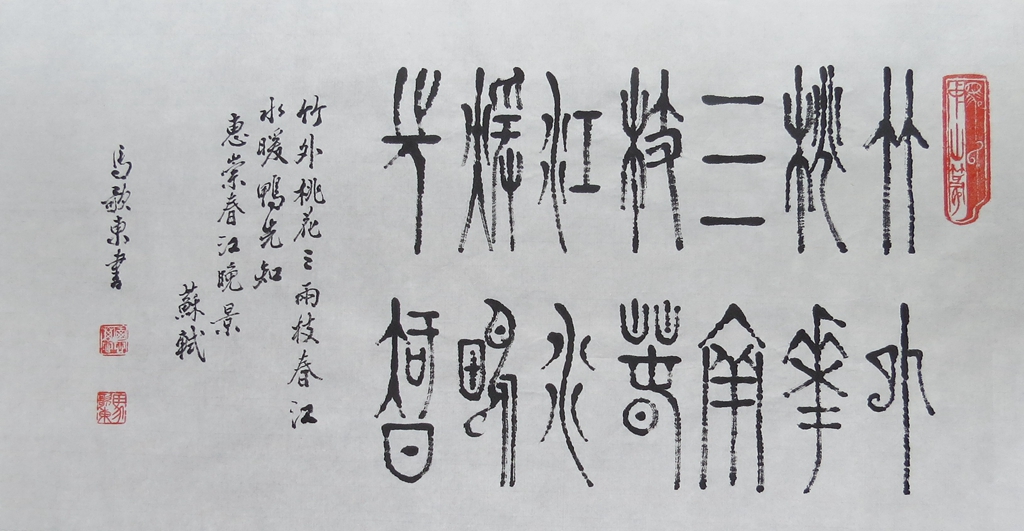 竹外
桃華
三兩
枝春
江水
煖鴨
先智
竹外桃花三兩枝春江
水暖鴨先知
惠崇春江晚景
蘇軾
馬歌東書